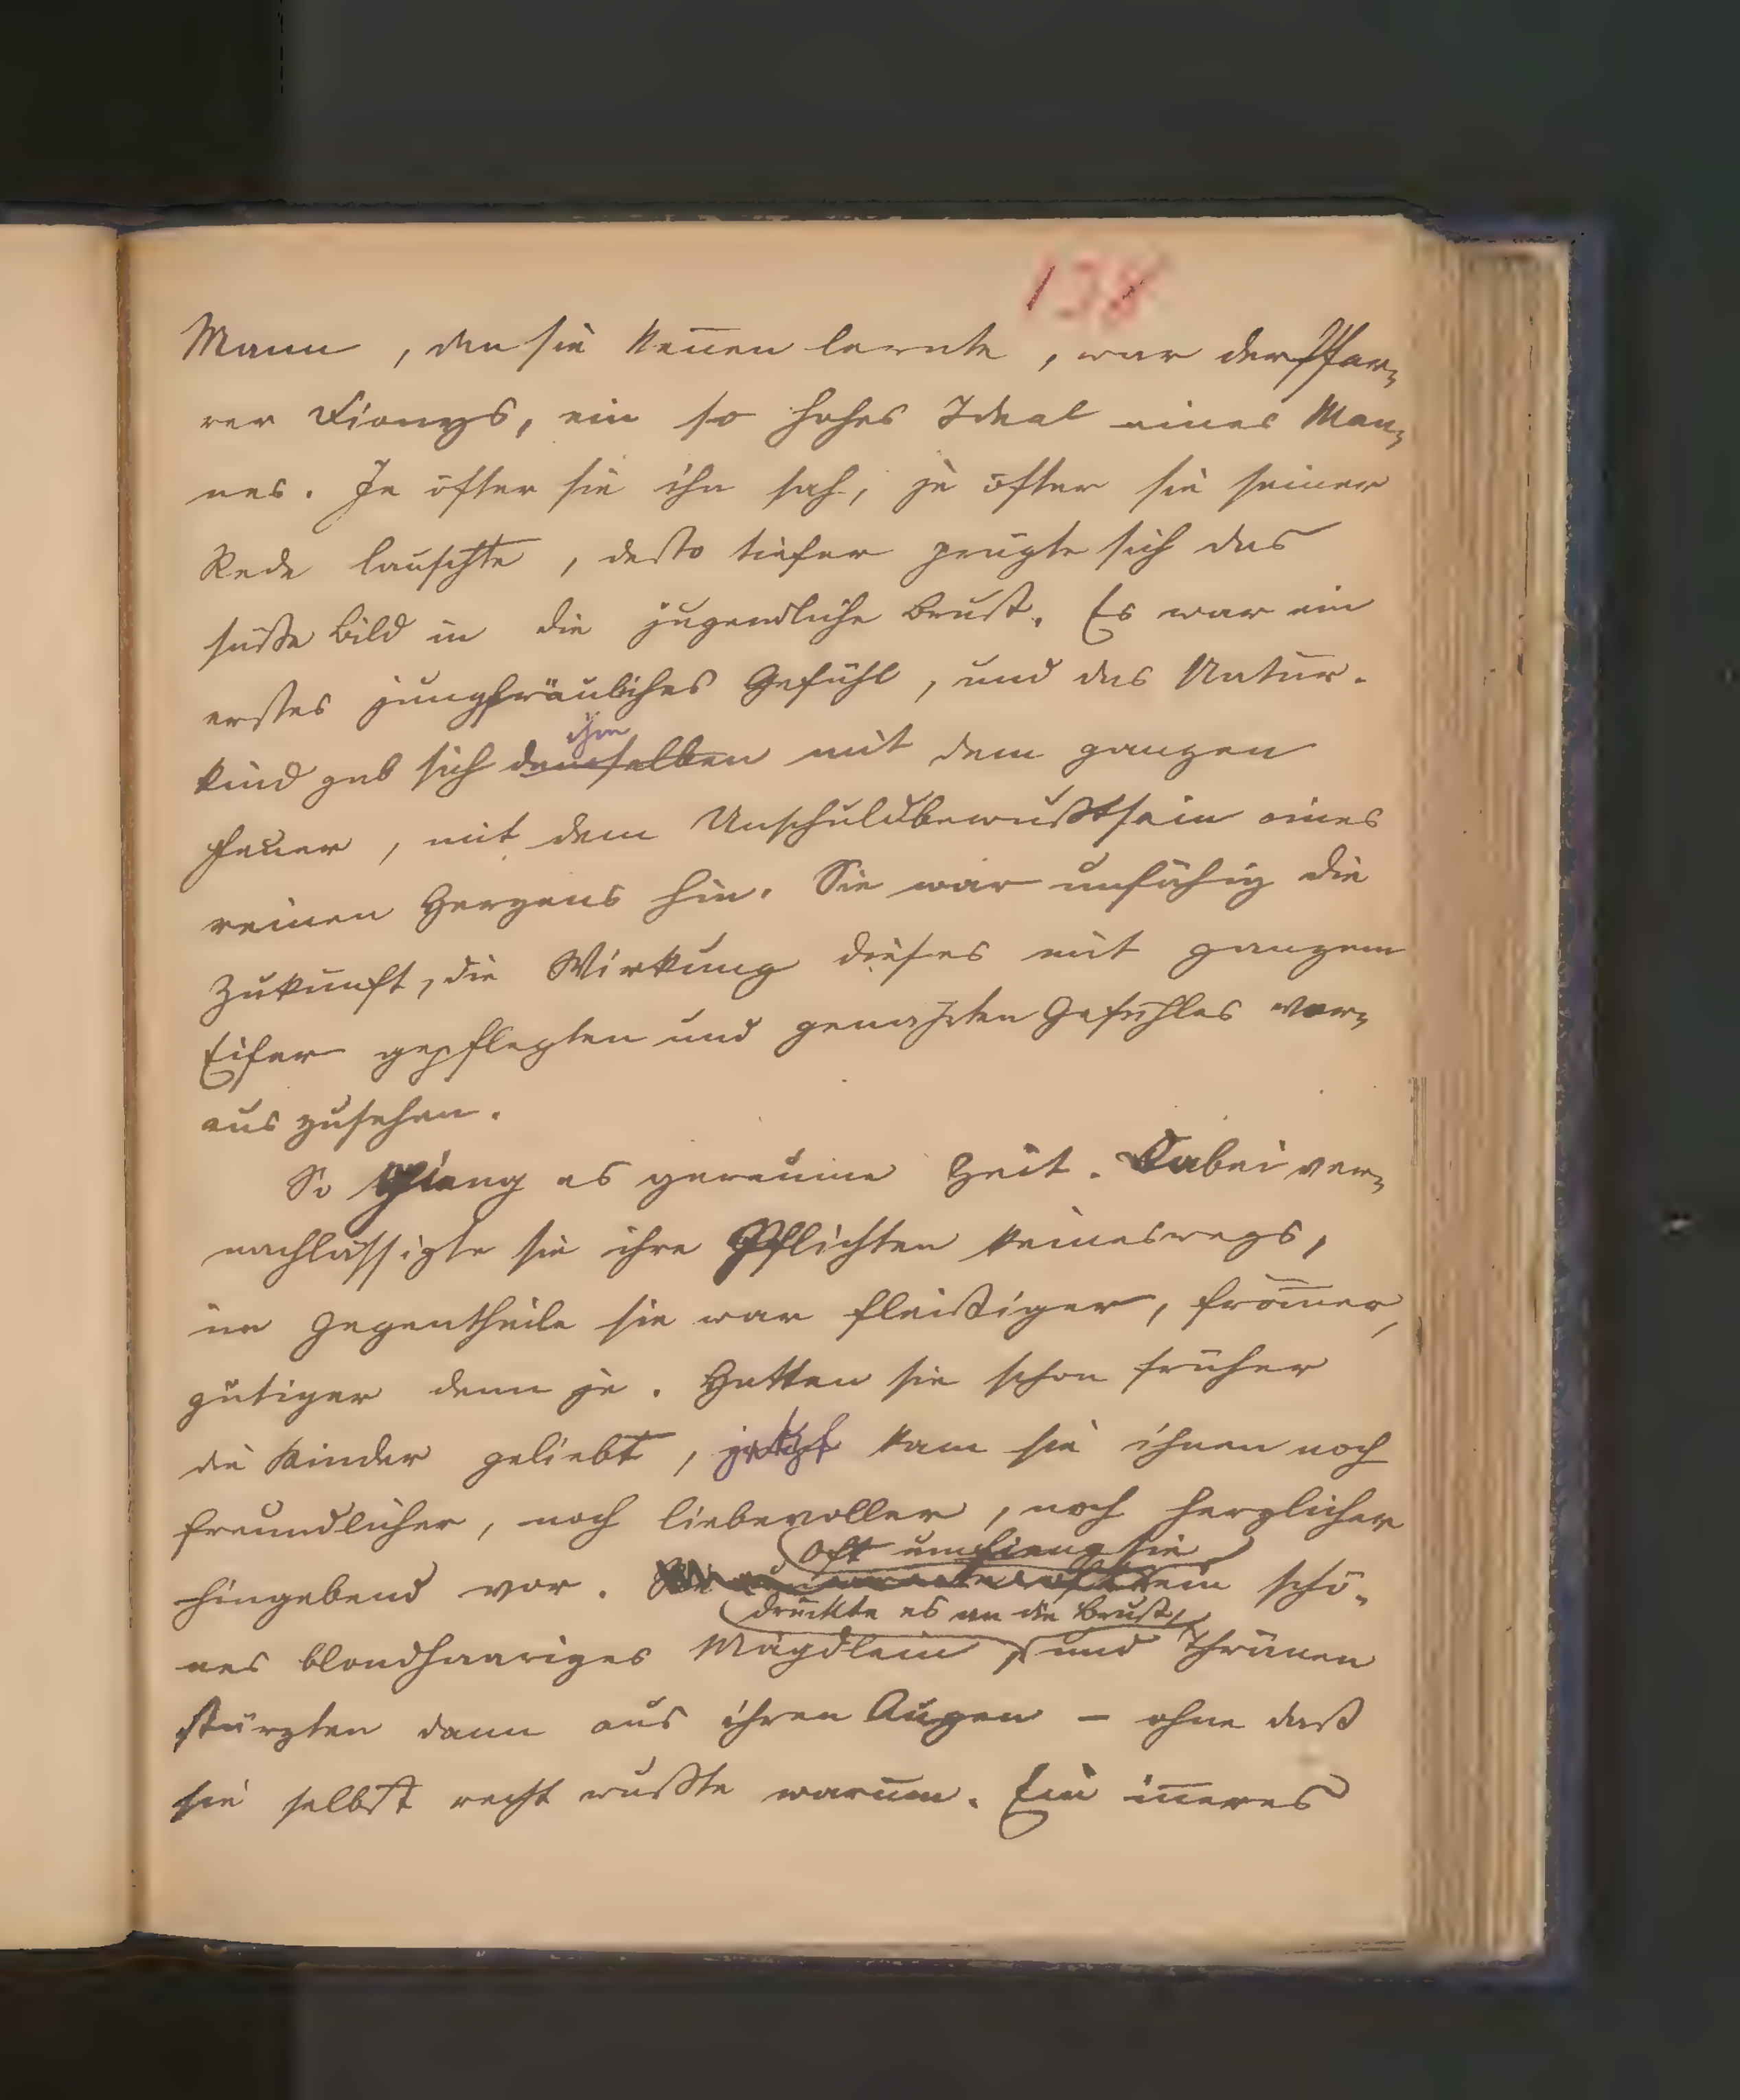 138
Mann, den sie kennen lernte, war der Pfar-
rer Dionys, ein so hohes Ideal eines Man-
nes. Je öfter sie ihn sah, je öfter sie seiner
Rede lauschte, desto tiefer prägte sich das
süße Bild in die jugendliche Brust. Es war ein
erstes jungfräuliches Gefühl, und das Natur-
ihm
kind gab sich demselben mit dem ganzen
Feuer, mit dem Unschuldbewußtsein eines
reinen Herzens hin. Sie war unfähig die
Zukunft, die Wirkung dieses mit ganzem
Eifer gepflegten und genährten Gefühles vor-
aus zusehen.
So gieng es geraume Zeit. Dabei ver-
nachlässigte sie ihre Pflichten keineswegs,
im Gegentheile sie war fleißiger, from̅er,
gütiger denn je. Hatten sie schon früher
die Kinder geliebt, jetzt kam sie ihnen noch
freundlicher, noch liebevoller, noch herzlicher
Oft umfieng sie
hingebend vor. ein schö-
drückte es an die Brust,
nes blondhaariges Mägdlein, und Thränen
stürzten dann aus ihren Augen – ohne daß
sie selbst recht wußte warum. Ein in̅eres